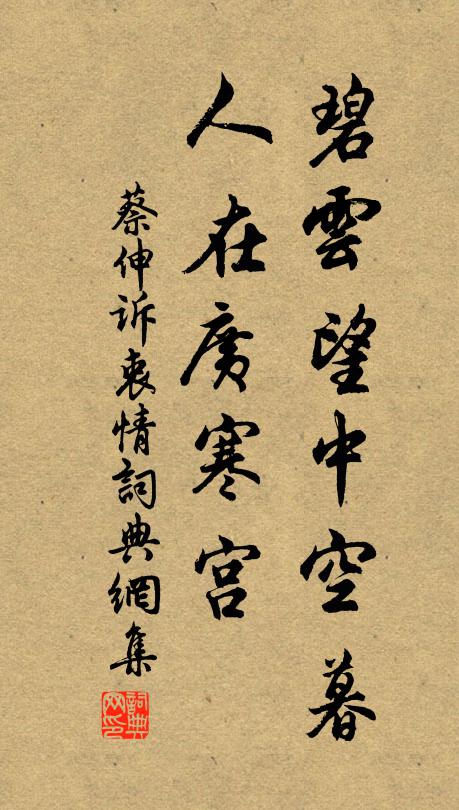 碧雲望中空暮
人在廣寒宮
蔡伸訴衷情詞典網集
詞典网印